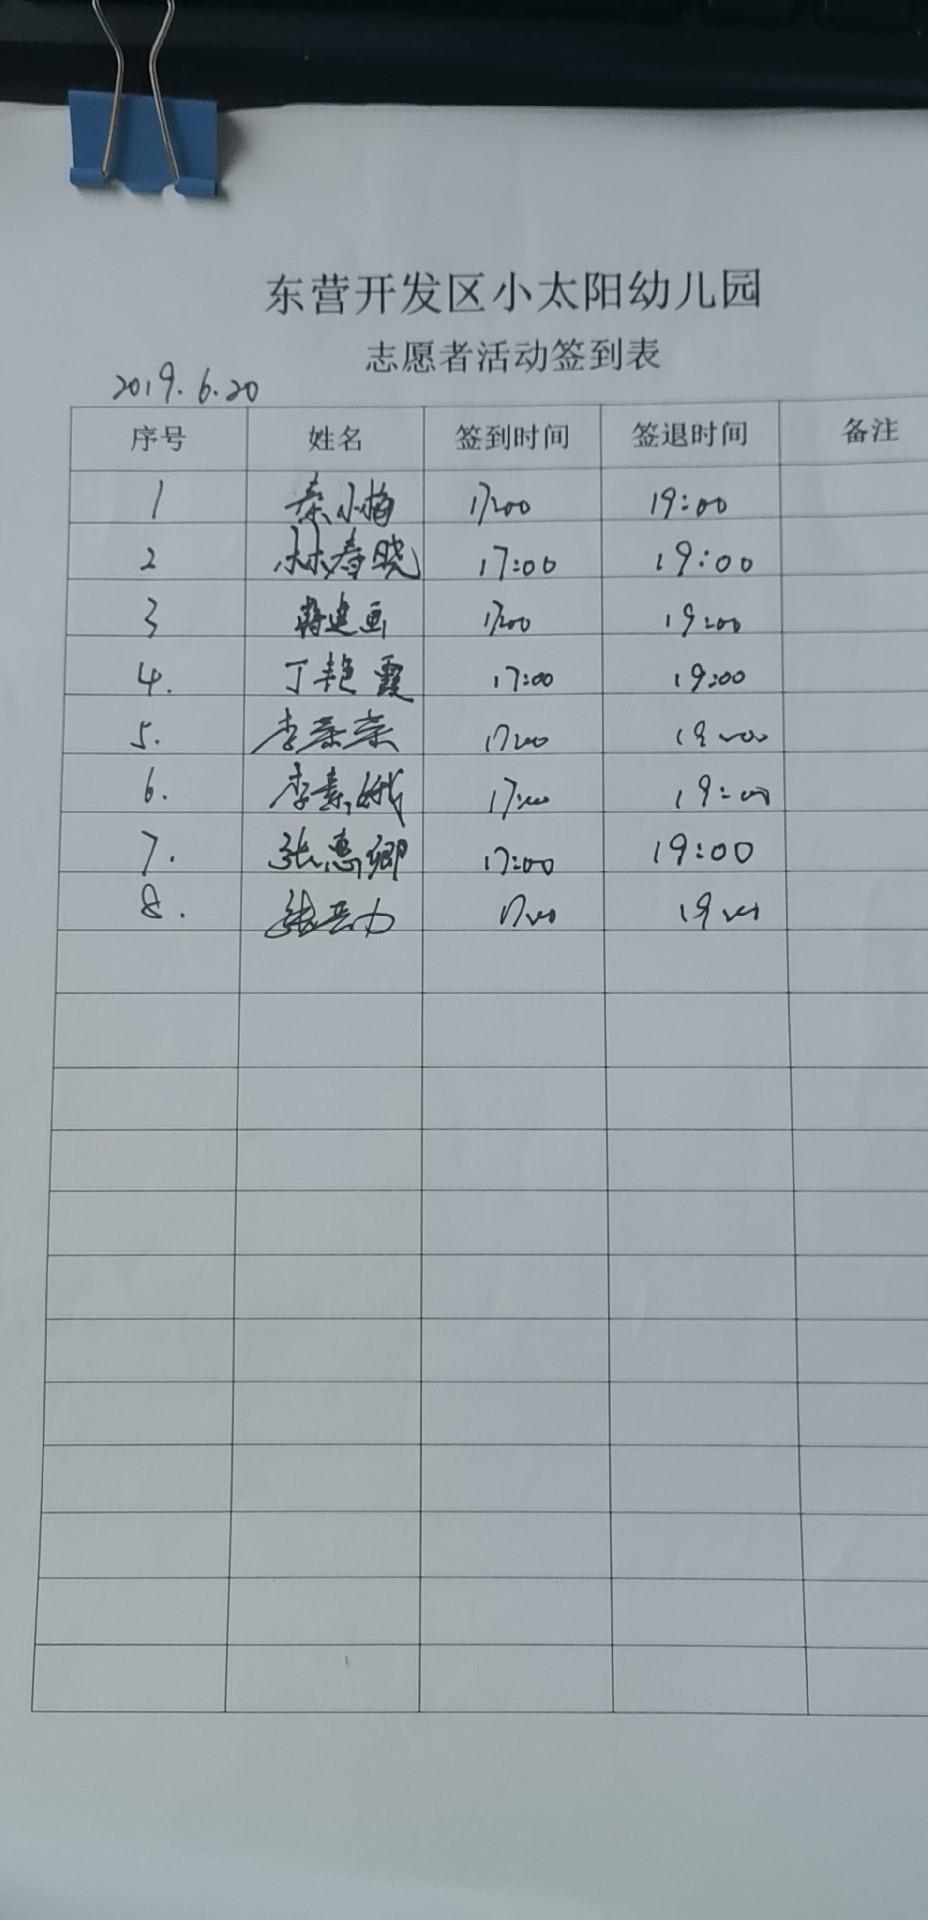 东营开发区小太阳幼儿园
志愿者活动签到表
2019.6.20
序号 姓名 签到时间 签退时间 备注
1 秦小梅 17:00 19:00
2 林春晓 17:00 19:00
3 蒋建画 17:00 19:00
4. 丁艳霞 17:00 19:00
5. 李荣荣 17:00 19:00
6. 李素娥 17:00 19:00
7. 张惠卿 17:00 19:00
8. 17:00 19:00